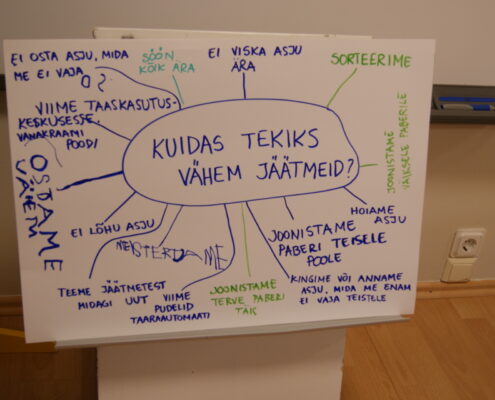 EI OSTA ASJU, MIDA
ME EI VAJA
SÖÖN
KÕIK ÄRA
EI VISKA ASJU
ÄRA
SORTEERIME
VIIME TAASKASUTUS-
KESKUSESSE,
VANAKRAAMI
POODI
KUIDAS TEKIKS
VÄHEM JÄÄTMEID?
JOONISTAME
VÄIKSELE PABERILE
OSTAME
VÄHEM
HOIAME
ASJU
EI LÕHU ASJU
MEISTERDAME
JOONISTAME
PABERI TEISELE
POOLE
TEEME JÄÄTMETEST
MIDAGI UUT
VIIME
PUDELID
TAARAAUTOMAATI
JOONISTAME
TERVE PABERI
TÄIS
KINGIME VÕI ANNAME
ASJU, MIDA ME ENAM
EI VAJA TEISTELE